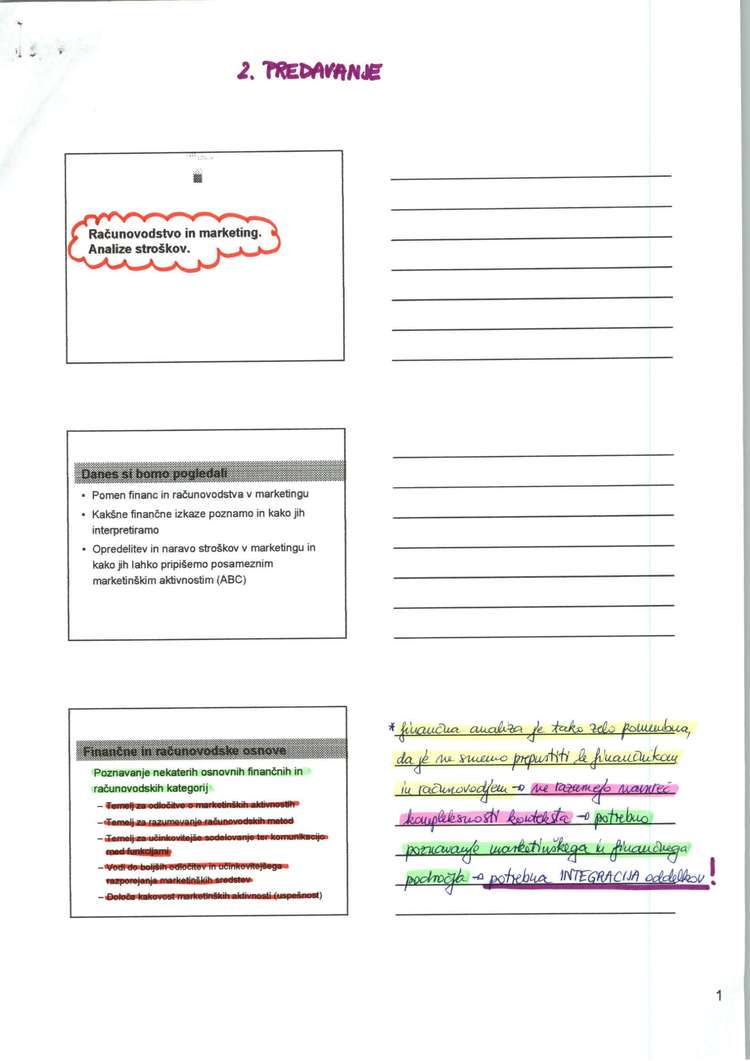 2. PREDAVANJE
Računovodstvo in marketing.
Analize stroškov.
Danes si bomo pogledali
• Pomen financ in računovodstva v marketingu
• Kakšne finančne izkaze poznamo in kako jih
interpretiramo
• Opredelitev in naravo stroškov v marketingu in
kako jih lahko pripišemo posameznim
marketinškim aktivnostim (ABC)
Finančne in računovodske osnove
Poznavanje nekaterih osnovnih finančnih in
računovodskih kategorij
– Temelj za odločitve o marketinških aktivnostih
– Temelj za razumevanje računovodskih metod
– Temelj za učinkovitejše sodelovanje ter komunikacijo
med funkcijami
– Vodi do boljših odločitev in učinkovitejšega
razporejanja marketinških sredstev
– Določa kakovost marketinških aktivnosti (uspešnost)
* finančna analiza je tako zelo pomembna,
da je ne smemo prepustiti le finančnikom
in računovodjem → ne razumejo namreč
kompleksnosti konteksta → potrebno
poznavanje marketinškega in finančnega
področja → potrebna INTEGRACIJA oddelkov!
1